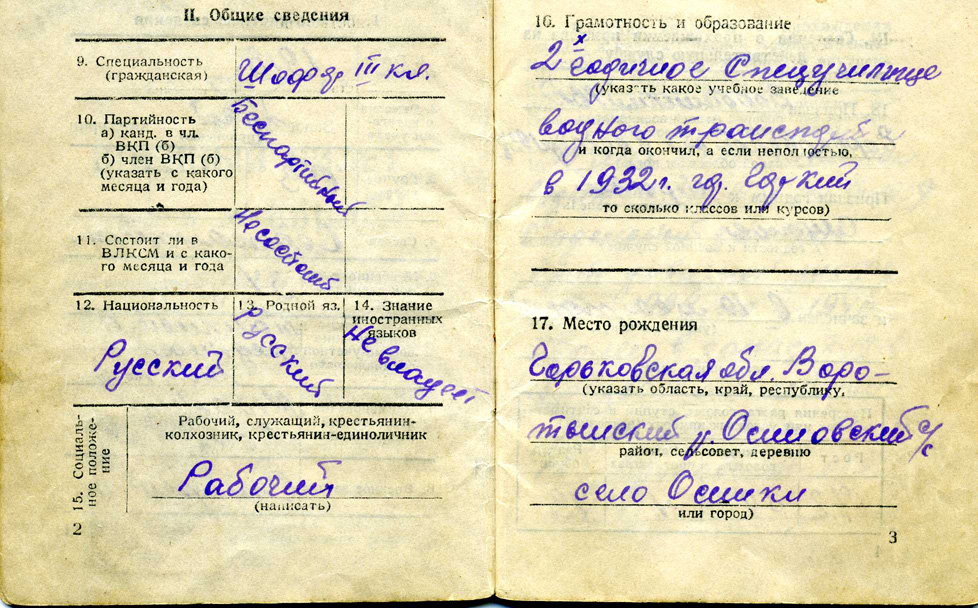 II. Общие сведения
9. Специальность
(гражданская)
Шофер III кл.
10. Партийность
а) канд. в чл.
ВКП (б)
б) член ВКП (б)
(указать с какого
месяца и года)
Беспартийный
11. Состоит ли в
ВЛКСМ и с како-
го месяца и года
Не состоит
12. Национальность
Русский
13. Родной яз.
Русский
14. Знание
иностранных
языков
Не владеет
15. Социаль-
ное положе-
ние
Рабочий, служащий, крестьянин-
колхозник, крестьянин-единоличник
Рабочий
(написать)
2
16. Грамотность и образование
2х годичное Спецучилище
(указать какое учебное заведение
водного
и когда окончил, а если неполностью,
в 1932 г.
то сколько классов или курсов)
17. Место рождения
Горьковская обл. Воро-
(указать область, край, республику,
тынский р. Осиновский с/с
район, сельсовет, деревню
село Осинки
или город)
3